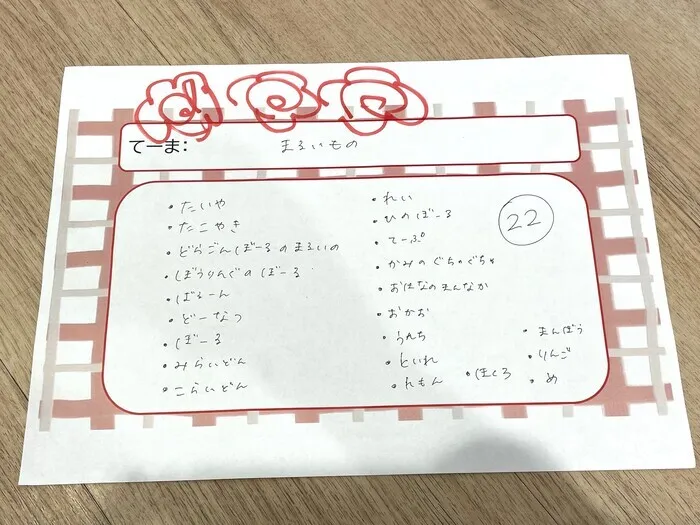 てーま:
まるいもの
・たいや
・たこやき
・どらごんぼーるのまるいの
・ぼうりんぐのぼーる
・ばるーん
・どーなつ
・ぼーる
・みらいどん
・こらいどん
・れい
・ひのぼーる
・てーぷ
・かみのぐちゃぐちゃ
・おはなのまんなか
・おかお
・うんち
・といれ
・れもん
・ほくろ
・まんぼう
・りんご
・め
22